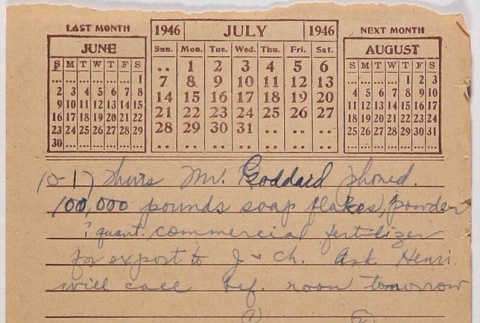 LAST MONTH 1946 JULY 1946 NEXT MONTH
JUNE
S M T W T F S
... ... ... ... ... ... 1
2 3 4 5 6 7 8
9 10 11 12 13 14 15
16 17 18 19 20 21 22
23 24 25 26 27 28 29
30 ... ... ... ... ... ...
Sun. Mon. Tue. Wed. Thu. Fri. Sat.
.. 1 2 3 4 5 6
7 8 9 10 11 12 13
14 15 16 17 18 19 20
21 22 23 24 25 26 27
28 29 30 31 .. .. ..
AUGUST
S M T W T F S
... ... ... ... 1 2 3
4 5 6 7 8 9 10
11 12 13 14 15 16 17
18 19 20 21 22 23 24
25 26 27 28 29 30 31
10-17 Thurs Mr. Goddard phoned.
100,000 pounds soap flakes, powder
? quant. commercial fertilizer
for export to J + Ch. Ask Henri.
will call bef. noon tomorrow